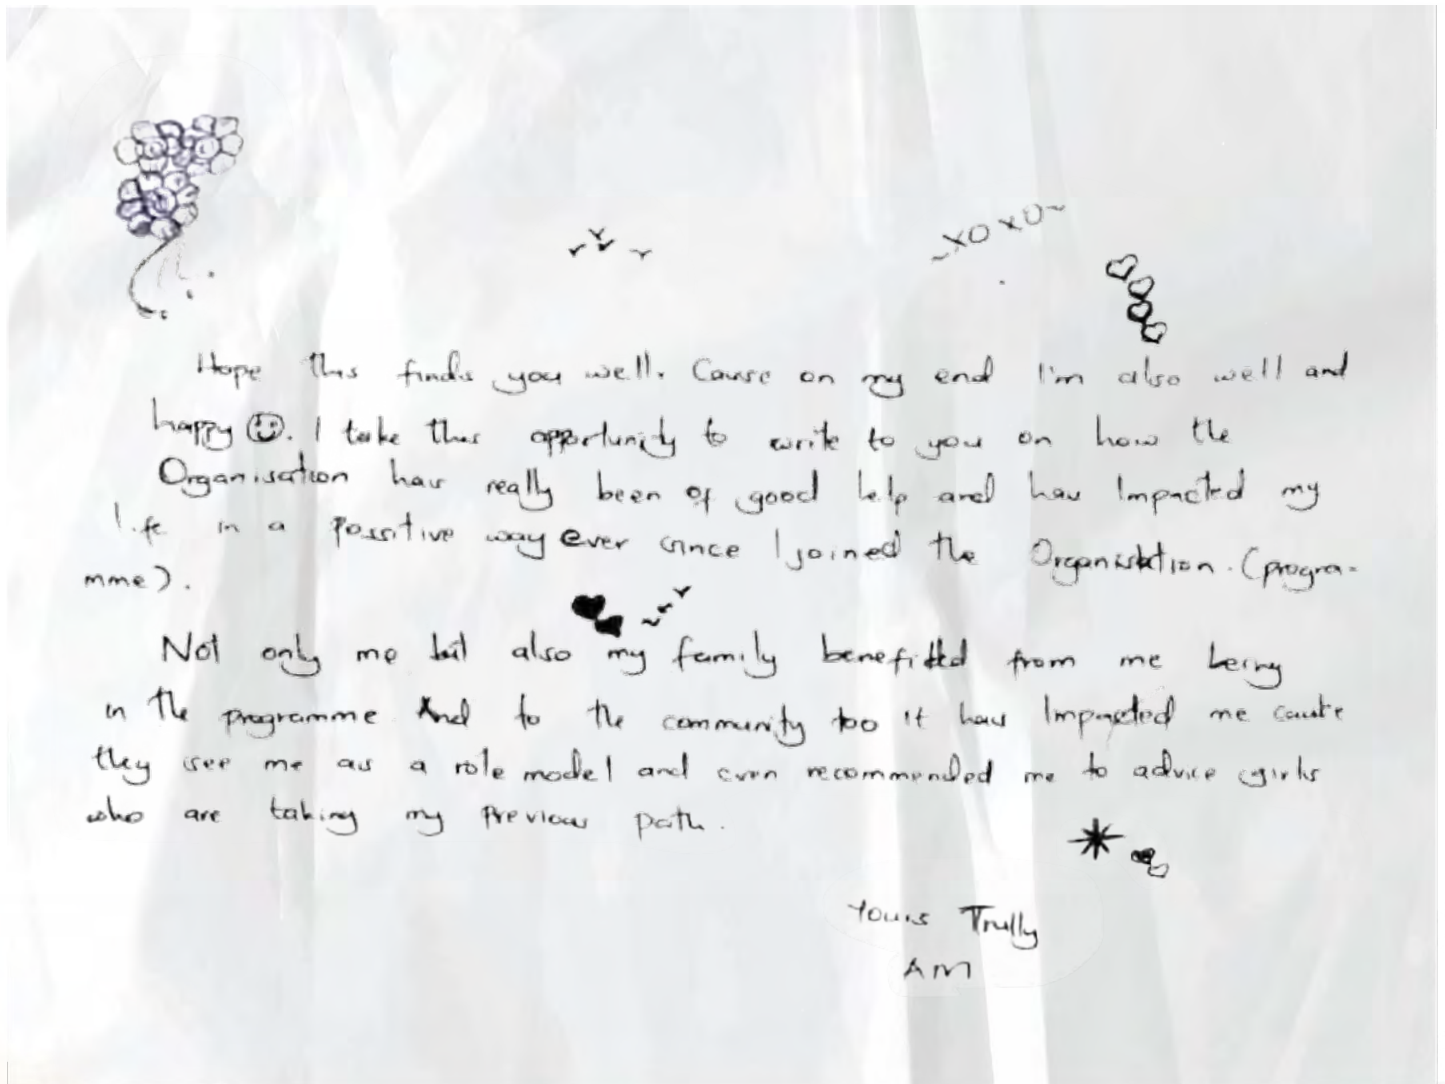 ~XO XO~
Hope this finds you well. Cause on my end I'm also well and
happy. I take this opportunity to write to you on how the
Organisation has really been of good help and has Impacted my
life in a Possitive way ever since I joined the Organisation. (progra-
mme).
Not only me but also my family benefitted from me being
in the programme And to the community too it has Impacted me cause
they see me as a role model and even recommended me to advice girls
who are taking my Previous path.
Yours Trully
AM